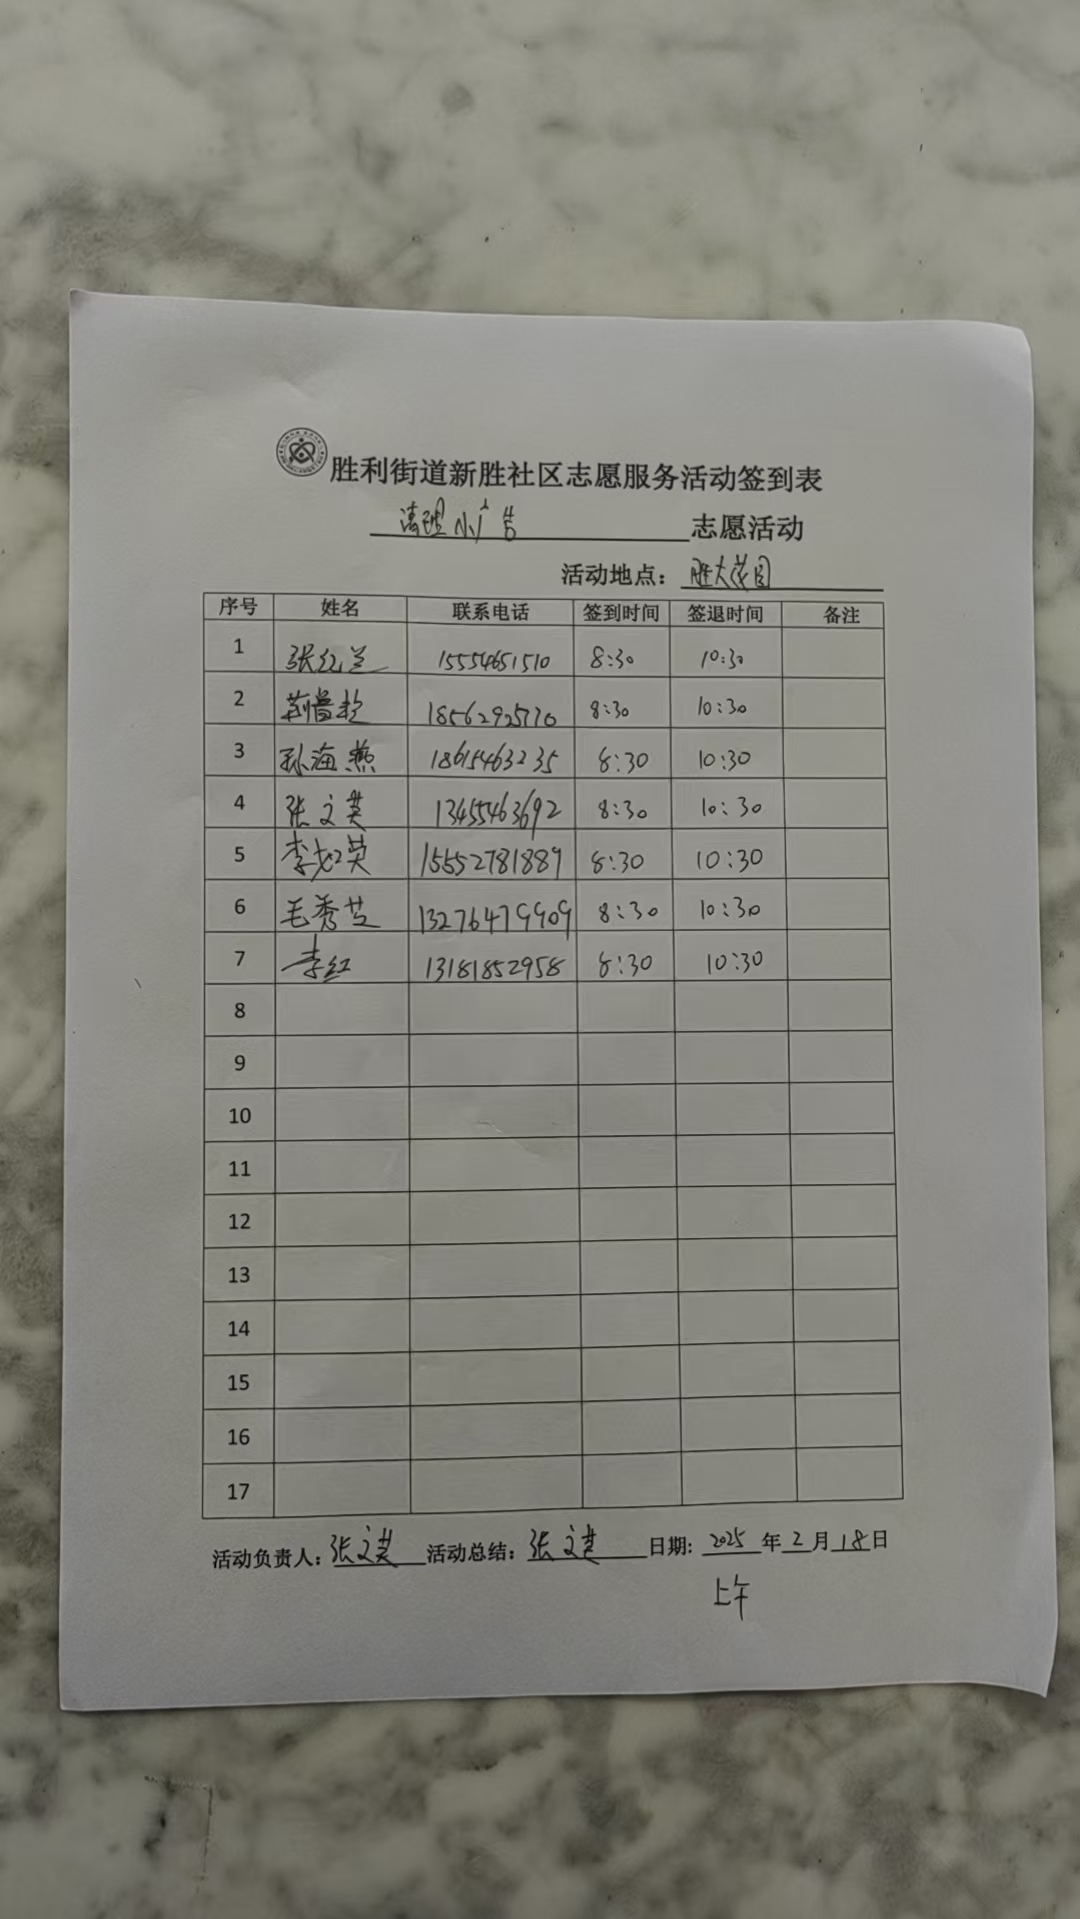 胜利街道新胜社区志愿服务活动签到表
清理小广告 志愿活动
活动地点：胜大花园
序号 姓名 联系电话 签到时间 签退时间 备注
1 张红兰 15554651510 8:30 10:30
2 18562925770 8:30 10:30
3 孙海燕 18615463235 8:30 10:30
4 张文英 13455463692 8:30 10:30
5 李红英 15552781889 8:30 10:30
6 毛秀芝 13276479909 8:30 10:30
7 李红 13181852958 8:30 10:30
8
9
10
11
12
13
14
15
16
17
活动负责人：张文英 活动总结：张文英 日期: 2025 年 2 月 18 日
上午